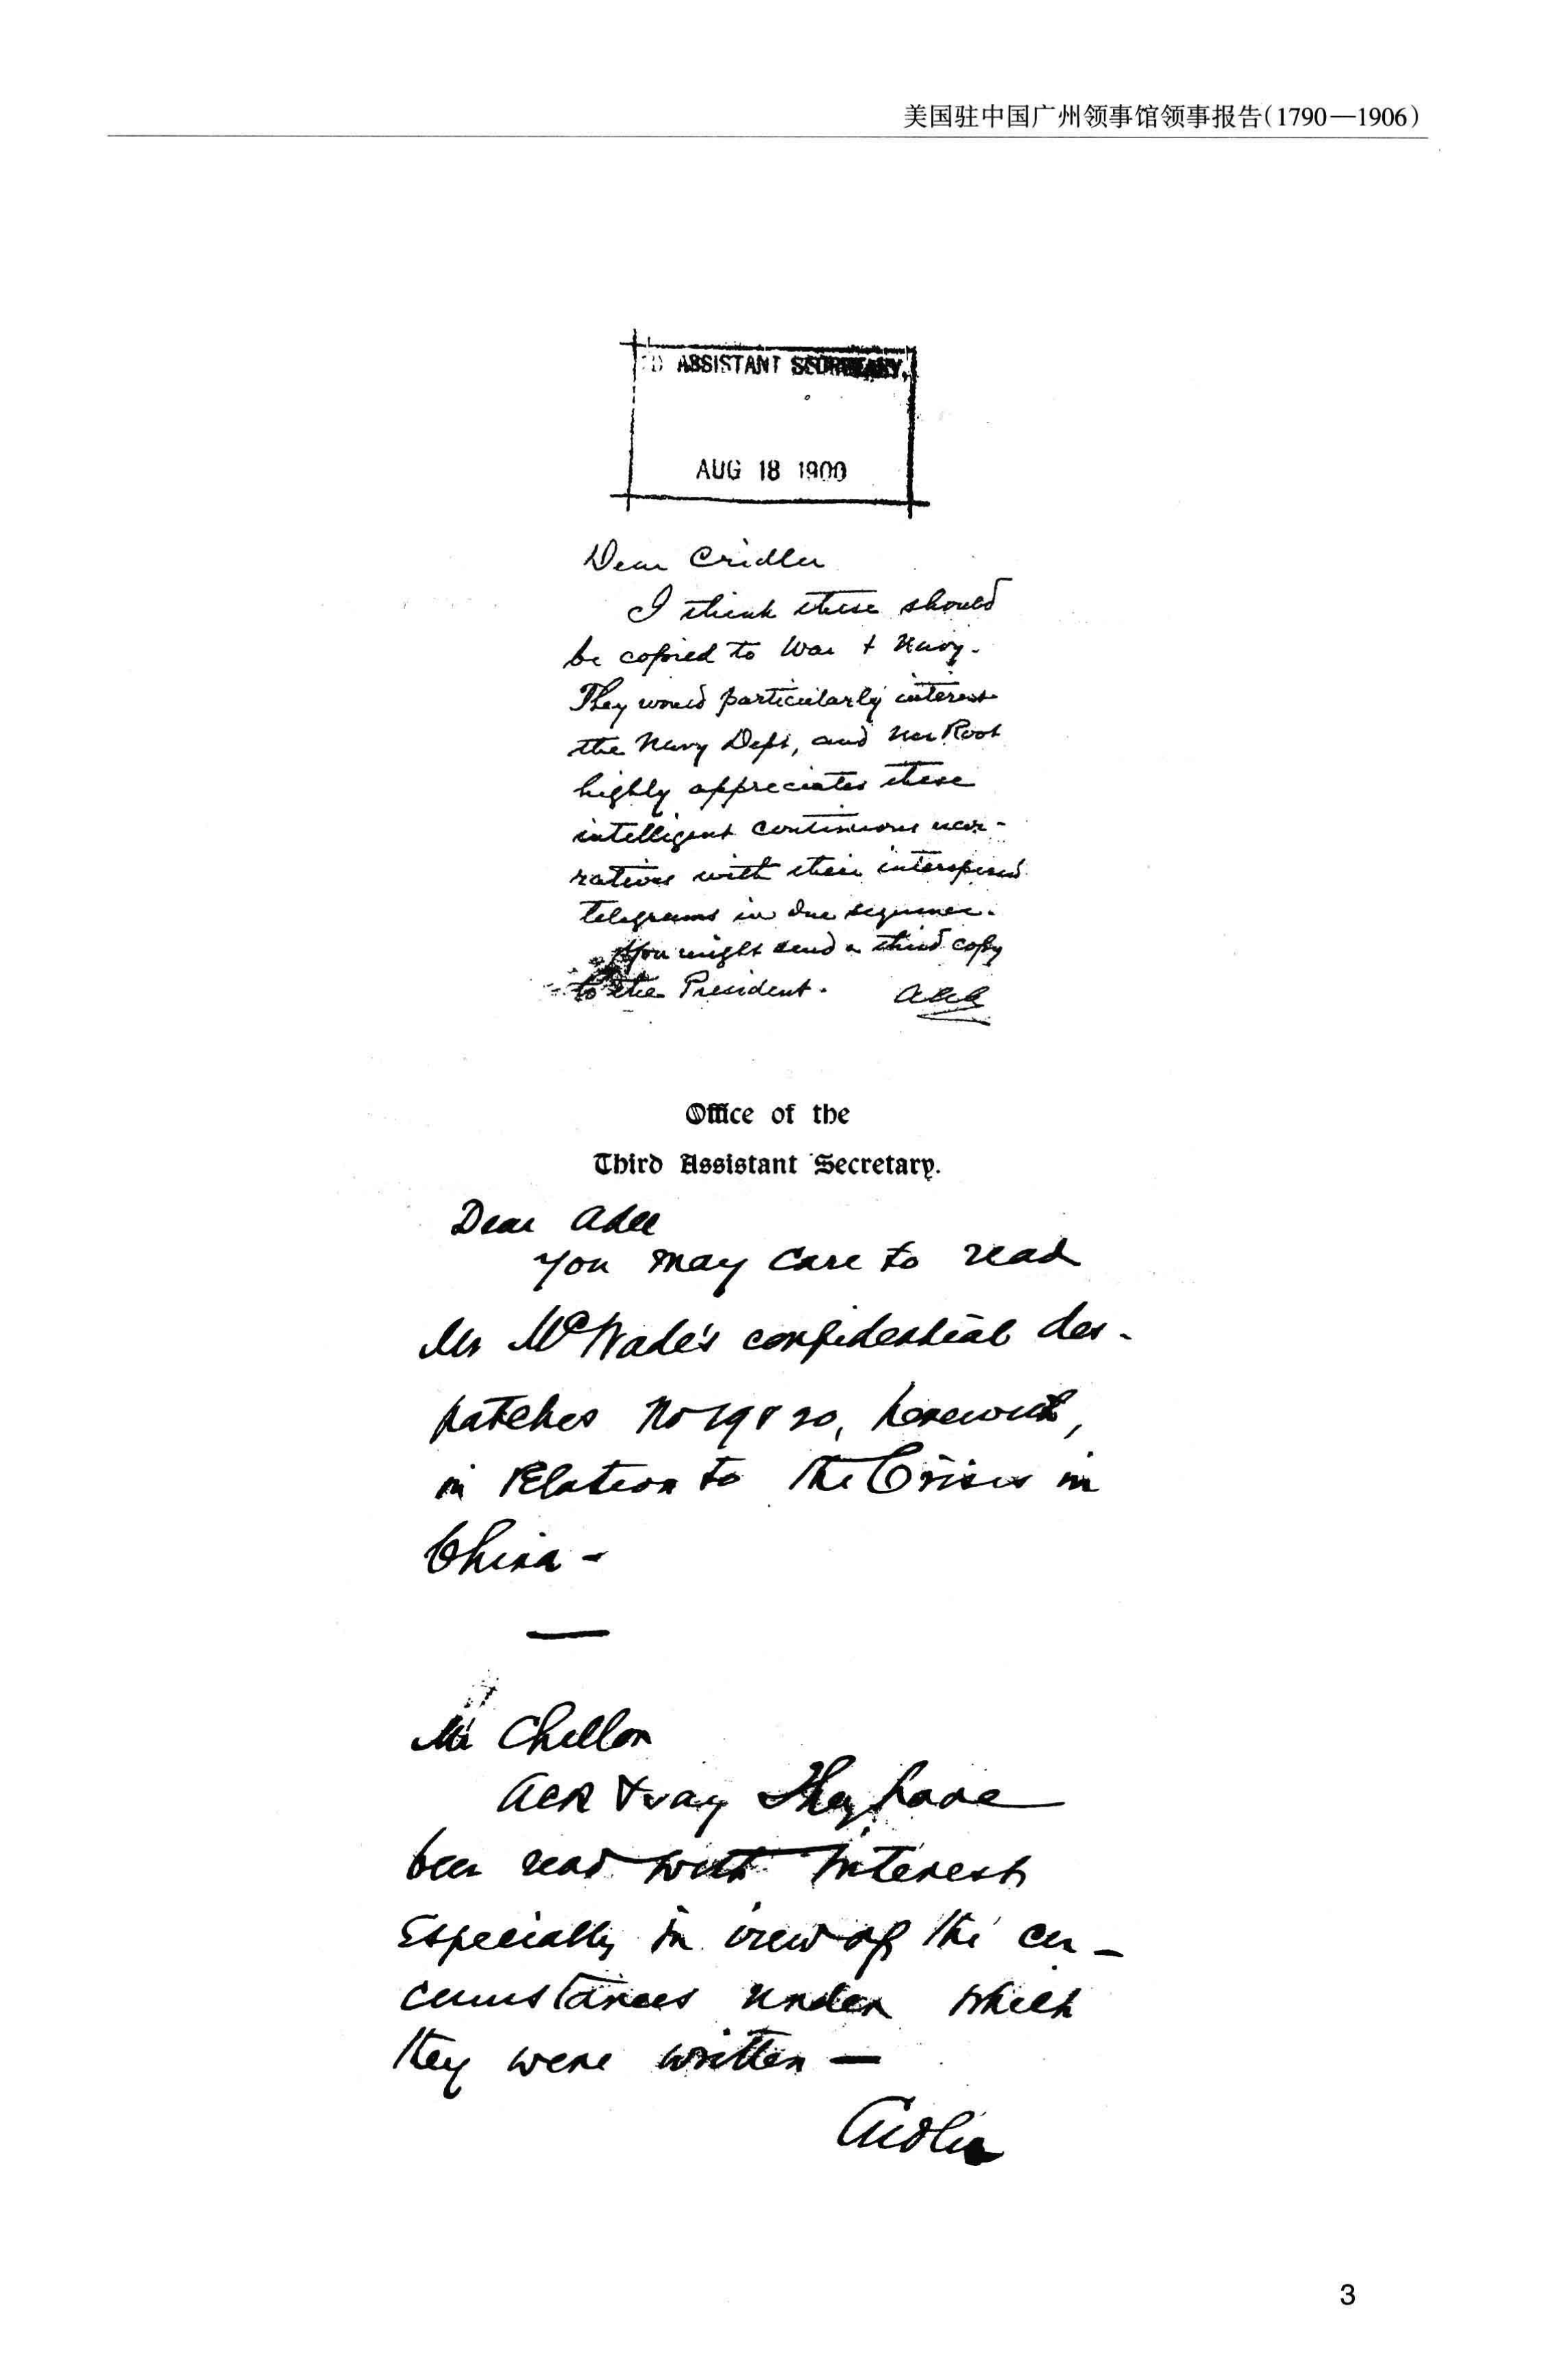 美国驻中国广州领事馆领事报告(1790—1906)
D ASSISTANT SECRETARY.
AUG 18 1900
Dear Cridler
I think these should
be copied to War + Navy.
They would particularly interest
the Navy Dept, and Mr Root
highly appreciates these
intelligent continuous nar-
ratives with their interspersed
telegrams in due sequence.
You might send a third copy
to the President. AAA
Office of the
Third Assistant Secretary.
Dear Adee
You may care to read
Mr McWade's confidential des-
patches No 19 & 20, herewith,
in Relation to the Crisis in
China -
Mr Chilton
Ack & say they have
been read with interest
Especially in view of the cir-
cumstances under which
they were written —
Cridler
3